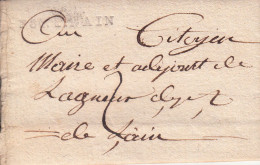 AIN
Au Citoyen
Maire et adjoint de
Lagnieu dept
de L'ain
2